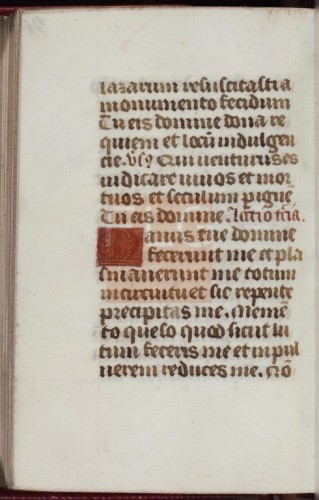 lazarum resuscitasti a
monumento fetidum
Tu eis domine dona re
quiem et locū indulgen
cie. v̄s9 Qui venturus es
iudicare vivos et mor
tuos et seculum p ignē
Tu eis domine. Lectio tercia.
Manus tue domine
fecerunt me et plas
maverunt me totum
in circuitu et sic repente
precipitas me. Memē
to queso quod sicut lu
tum feceris me et in pul
verem reduces me. Nō